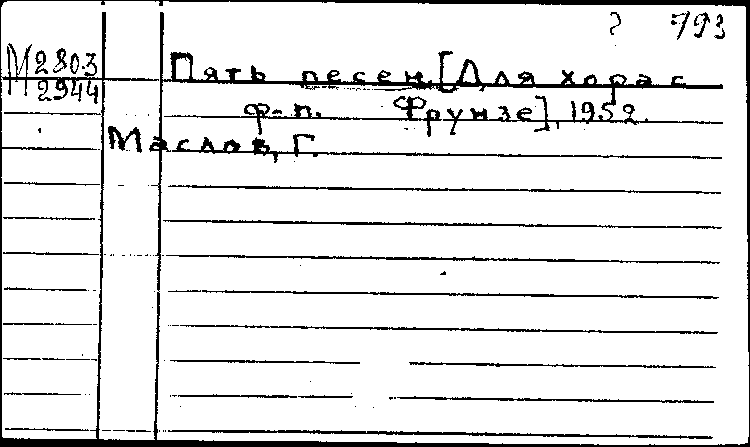 ? 793
М 2803 Пять песен. [Для хора с
2944 ф-п. Фрунзе], 1952.
Маслов, Г.